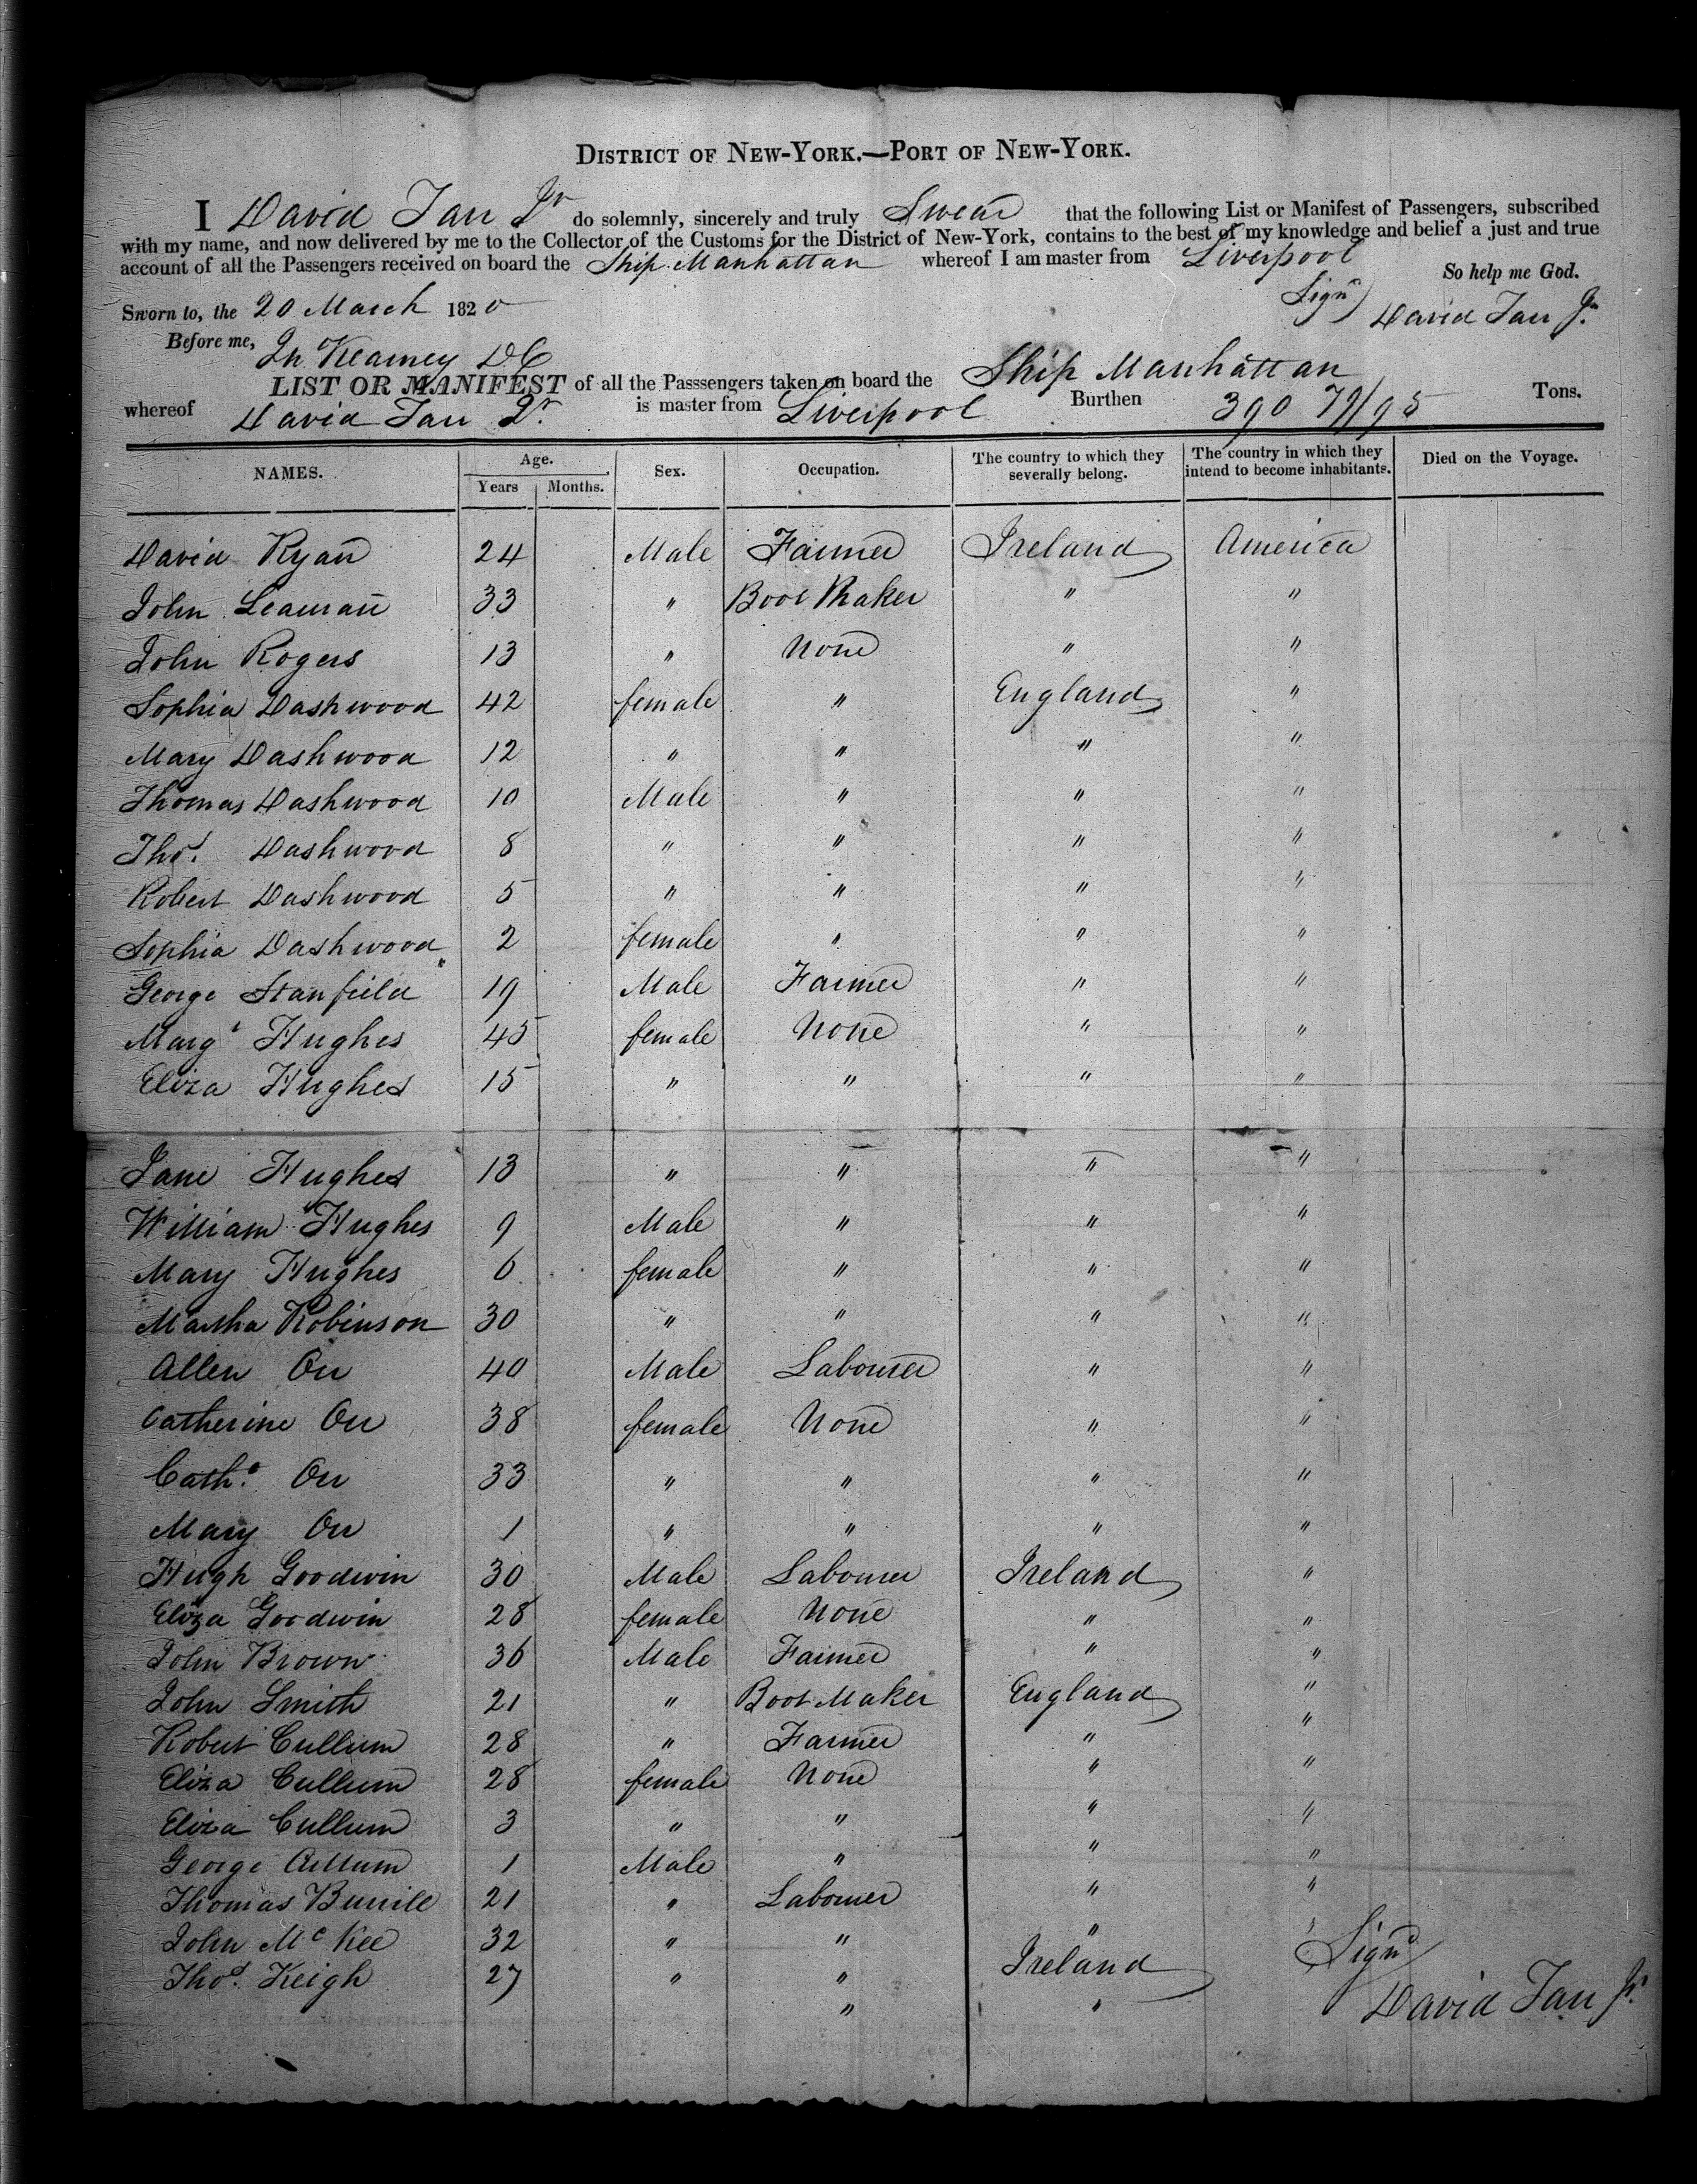 DISTRICT OF NEW-YORK.—PORT OF NEW-YORK.
I David Tarr Jr do solemnly, sincerely and truly Swear that the following List or Manifest of Passengers, subscribed
with my name, and now delivered by me to the Collector of the Customs for the District of New-York, contains to the best of my knowledge and belief a just and true
account of all the Passengers received on board the Ship Manhattan whereof I am master from Liverpool
So help me God.
Sworn to, the 20 March 1820 Signd) David Tarr Jr.
Before me, Kearney DC
LIST OR MANIFEST of all the Passsengers taken on board the Ship Manhattan
whereof David Tarr Jr. is master from Liverpool Burthen 390 79/95 Tons.
NAMES. Age. Sex. Occupation. The country to which they severally belong. The country in which they intend to become inhabitants. Died on the Voyage.
Years Months.
David Ryan 24 Male Farmer Ireland America
John Leaman 33 " Boot Maker " "
John Rogers 13 " None " "
Sophia Dashwood 42 female " England "
Mary Dashwood 12 " " " "
Thomas Dashwood 10 Male " " "
Thos. Dashwood 8 " " " "
Robert Dashwood 5 " " " "
Sophia Dashwood 2 female " " "
George Stanfield 19 Male Farmer " "
Margt Hughes 45 female None " "
Eliza Hughes 15 " " " "
Jane Hughes 13 " " " "
William Hughes 9 Male " " "
Mary Hughes 6 female " " "
Martha Robinson 30 " " " "
Allen Orr 40 Male Labourer " "
Catherine Orr 38 female None " "
Cathe. Orr 33 " " " "
Mary Orr 1 " " " "
Hugh Goodwin 30 Male Labourer Ireland "
Eliza Goodwin 28 female None " "
John Brown 36 Male Farmer " "
John Smith 21 " Boot Maker England "
Robert Cullum 28 " Farmer " "
Eliza Cullum 28 female None " "
Eliza Cullum 3 " " " "
George Cullum 1 Male " " "
Thomas 21 " Labourer " "
John McKee 32 " " " "
Thos. Keigh 27 " " Ireland
" "
Signd
David Tarr Jr.